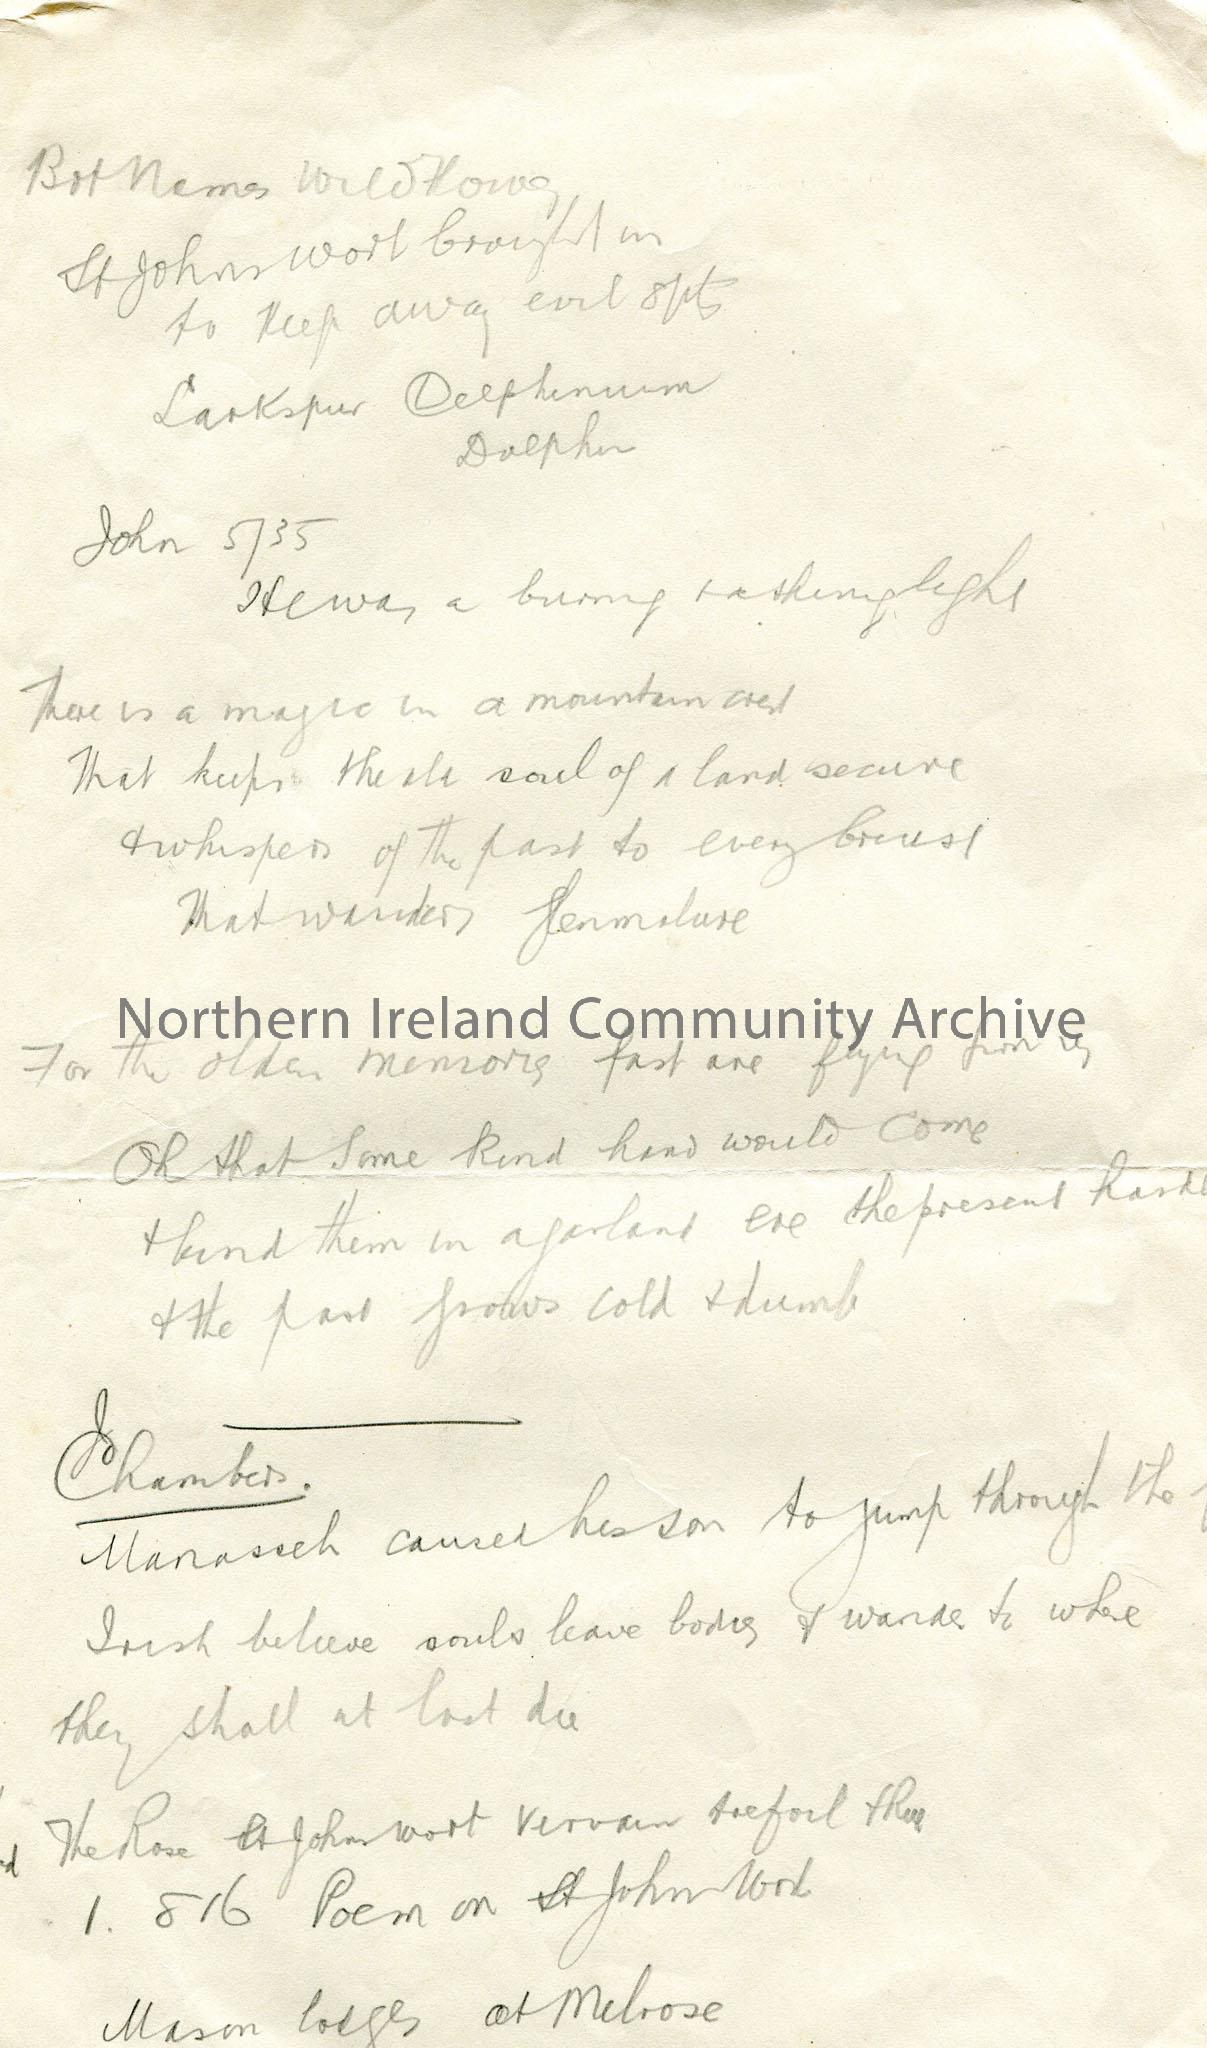 Bot Names Wild Flowers
St Johns Wort brought in
to keep away evil spts
Larkspur Delphinium
Dolphin
John 5/35
He was a burning & a shining light
There is a magic in a mountain crest
That keeps the old soul of a land secure
& whispers of the past to every breast
That wanders Glenmalure
Northern Ireland Community Archive
For the olden memories fast are flying from us
Oh that some kind hand would come
& bind them in a garland ere the present hardens
& the past grows cold & dumb
Chambers.
Manasseh caused his son to jump through the
Irish believe souls leave bodies & wander to where
they shall at last die
The Rose St Johns wort vervain trefoil
1. 816 Poem on St Johns Wort
Mason lodges at Melrose